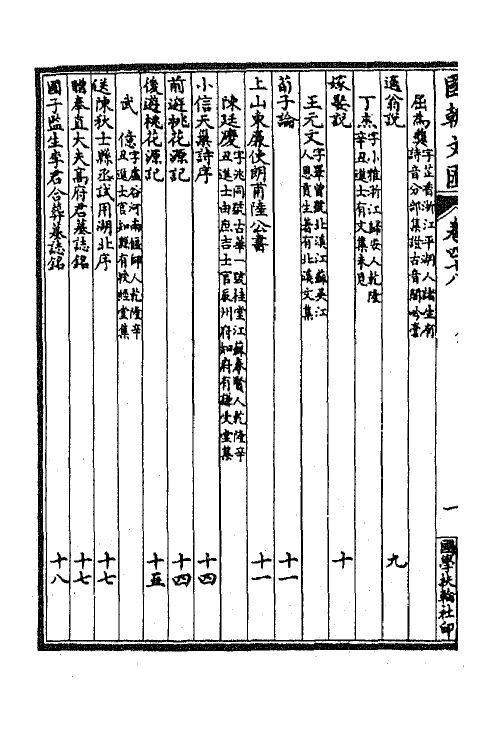 國朝文匯 卷四十八 一 國學扶輪社印
屈為彝 字芷香浙江平湖人諸生有詩音分部集證古音閒吟草
適翁說 九
丁杰 字小雅浙江歸安人乾隆辛丑進士有文集未見
嫁娶說 十
王元文 字畢曾號北溪江蘇吳江人恩貢生著有北溪文集
荀子論 十一
上山東嚴使朗甫陸公書 十一
陳廷慶 字兆同號古華一號桂堂江蘇奉賢人乾隆辛丑進士由庶吉士官辰州府知府有謙受堂集
小信天巢詩序 十四
前遊桃花源記 十四
後遊桃花源記 十五
武億 字虛谷河南偃師人乾隆辛丑進士官知縣有授經堂集
送陳秋士縣丞試用湖北序 十七
贈奉直大夫高府君墓誌銘 十七
國子監生李君合葬墓誌銘 十八